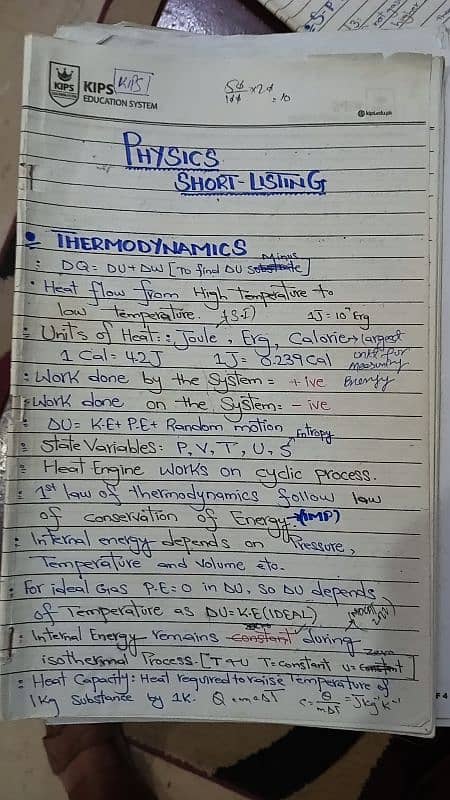 KIPS
KIPS
KIPS
EDUCATION SYSTEM
kips.edu.pk
PHYSICS
SHORT-LISTING
THERMODYNAMICS
: DQ = DU + DW [To find DU Minus]
Heat flow from High Temperature to
low Temperature. (S.I) 1J = 10⁷ Erg
: Units of Heat:: Joule, Erg, Calorie → largest
unit for
measuring
Energy
1 Cal = 4.2J 1J = 0.239 Cal
: Work done by the System = +ive
: Work done on the System = -ive
DU = K.E + P.E + Random motion
Entropy
: State Variables: P, V, T, U, S
: Heat Engine works on cyclic process.
: 1st law of thermodynamics follow law
of conservation of Energy. (IMP)
: Internal energy depends on Pressure,
Temperature and Volume etc.
: For ideal Gas P.E = 0 in DU, So DU depends
of Temperature as DU = K.E (IDEAL)
: Internal Energy remains constant during
Zero
isothermal Process. [T = constant U = constant]
: Heat Capacity: Heat required to raise temperature of
1Kg Substance by 1K. Q = mcΔT c = Q/mΔT = Jkg⁻¹K⁻¹